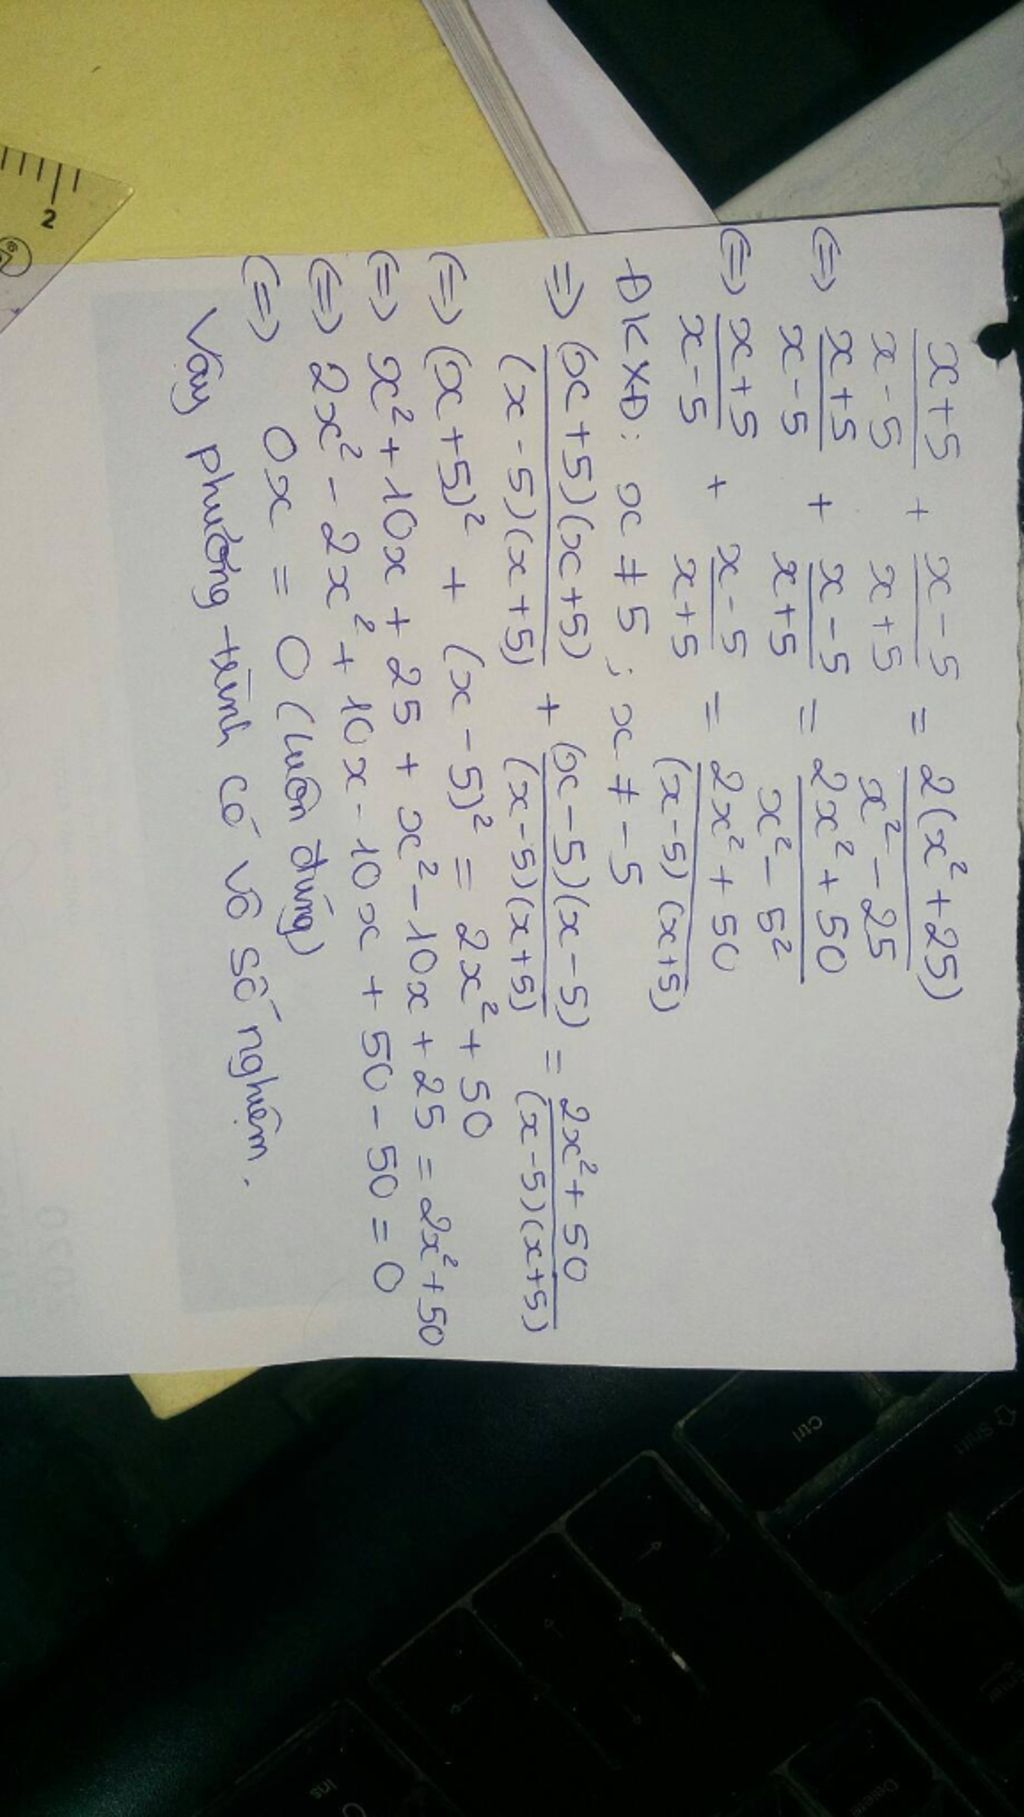 x+5/x-5 + x-5/x+5 = 2(x²+25)/x²-25
(=) x+5/x-5 + x-5/x+5 = 2x²+50/x²-5²
(=) x+5/x-5 + x-5/x+5 = 2x²+50/(x-5)(x+5)
ĐKXĐ: x ≠ 5 ; x ≠ -5
=) (x+5)(x+5)/(x-5)(x+5) + (x-5)(x-5)/(x-5)(x+5) = 2x²+50/(x-5)(x+5)
(=) (x+5)² + (x-5)² = 2x²+50
(=) x²+10x+25+x²-10x+25 = 2x²+50
(=) 2x²-2x²+10x-10x+50-50=0
(=) 0x = 0 (luôn đúng)
Vậy phương trình có vô số nghiệm.
2
Ctrl
Shift
Ins
Delete